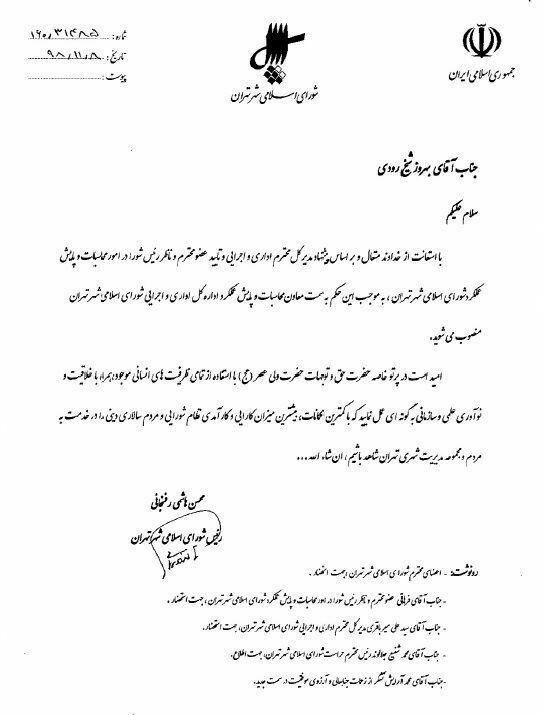 جمهوری اسلامی ایران
شورای اسلامی شهر تهران
شماره: ۱۶۰/۳۱۴۸۵
تاریخ: ۹۸/۱۱/۸
پیوست:
جناب آقای بهروز شیخ رودی
سلام علیکم
با استعانت از خداوند متعال و بر اساس پیشنهاد مدیر کل محترم اداری و اجرایی و تایید عضو محترم و ناظر رئیس شورا در امور محاسبات و پایش
عملکرد شورای اسلامی شهر تهران، به موجب این حکم به سمت معاون محاسبات و پایش عملکرد اداره کل اداری و اجرایی شورای اسلامی شهر تهران
منصوب می شوید.
امید است در پرتو خاصه حضرت حق و توجهات حضرت ولی عصر (عج) با استفاده از تمامی ظرفیت های انسانی موجود، همراه با خلاقیت و
نوآوری علمی و سازمانی به گونه ای عمل نمایید که با کمترین امکانات، بیشترین میزان کارایی و کارآمدی نظام شورایی و مردم سالاری دینی را در خدمت به
مردم و مجموعه مدیریت شهری تهران شاهد باشیم، ان شاء الله...
محسن هاشمی رفسنجانی
رئیس شورای اسلامی شهر تهران
رونوشت: - اعضای محترم شورای اسلامی شهر تهران، جهت استحضار.
- جناب آقای فراهانی عضو محترم و ناظر رئیس شورا در امور محاسبات و پایش عملکرد شورای اسلامی شهر تهران، جهت استحضار.
- جناب آقای سید علی میرباقری مدیر کل محترم اداری و اجرایی شورای اسلامی شهر تهران، جهت استحضار.
- جناب آقای محمد شفیع رئیس محترم حراست شورای اسلامی شهر تهران، جهت اطلاع.
- جناب آقای محمد آرایش تشکر از زحمات جنابعالی و آرزوی موفقیت در سمت جدید.